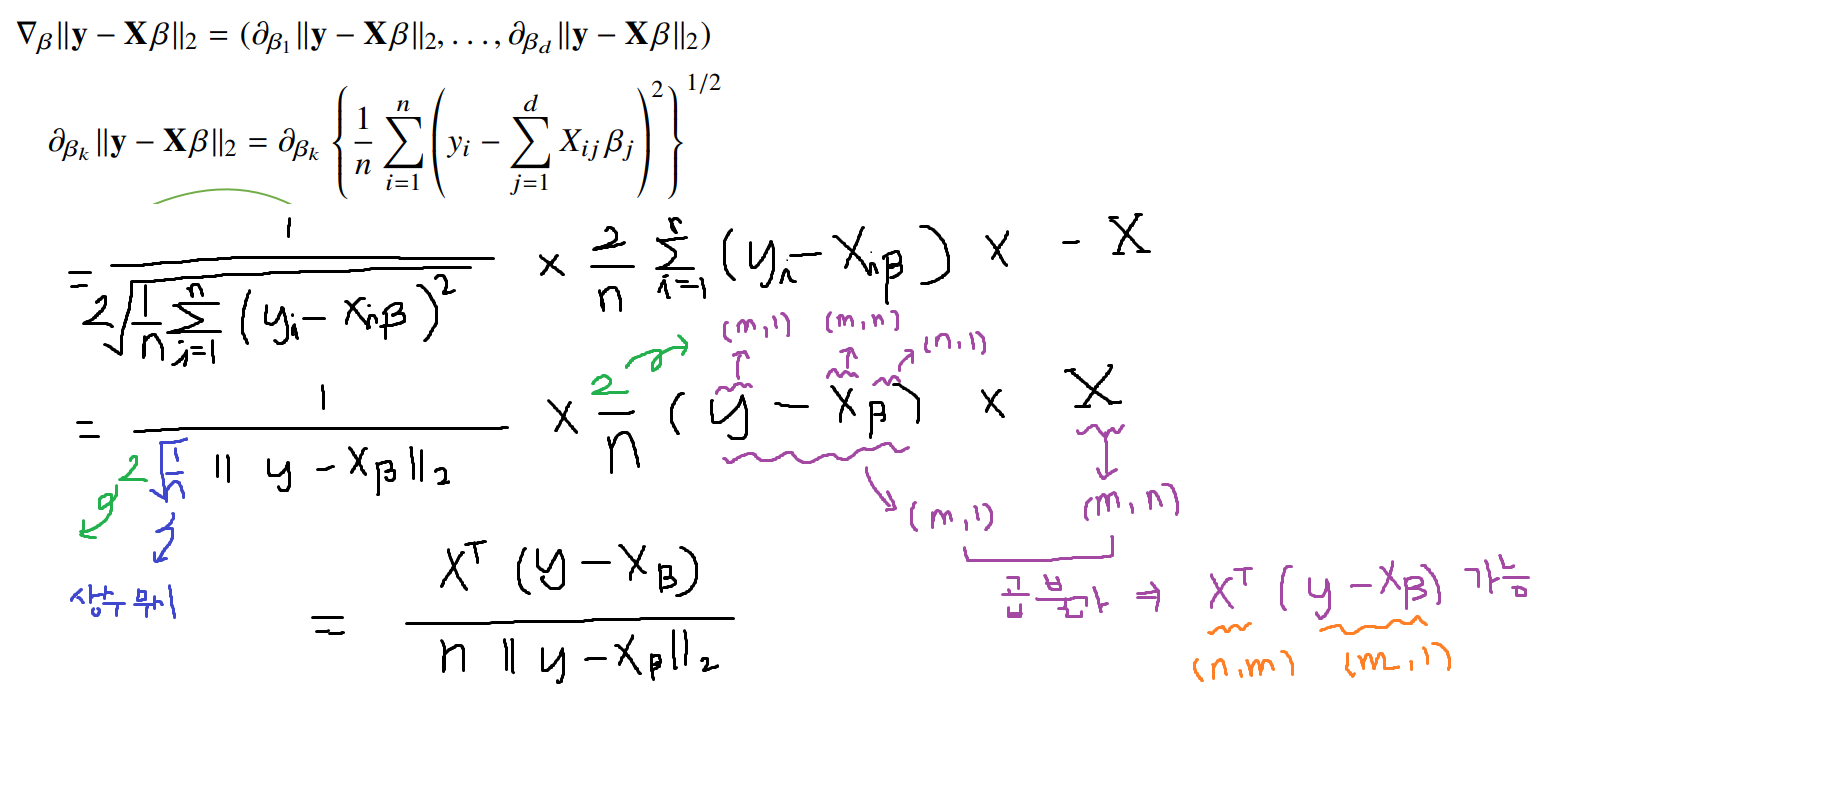 ∇β‖y − Xβ‖₂ = (∂β₁‖y − Xβ‖₂, . . . , ∂β_d‖y − Xβ‖₂)
∂β_k‖y − Xβ‖₂ = ∂β_k { 1/n ∑_{i=1}^{n} ( y_i − ∑_{j=1}^{d} X_{ij}β_j )² }^{1/2}
= 1 / 2√(1/n ∑_{i=1}^{n} (y_i − X_iβ)²) × 2/n ∑_{i=1}^{n} (y_i − X_iβ) × − X
(m,1) (m,n) (n,1)
= 1 / 2√(1/n) ‖y − Xβ‖₂ × 2/n (y − Xβ) × X
(m,1) (m,n)
상수 무시
곱 불가 ⇒ X^T (y − Xβ) 가능
(n,m) (m,1)
= X^T (y − Xβ) / n ‖y − Xβ‖₂